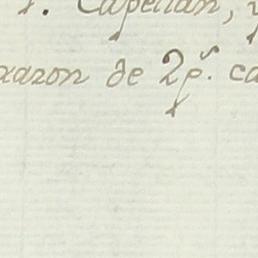 Capellan,
razon de 2 p.^s